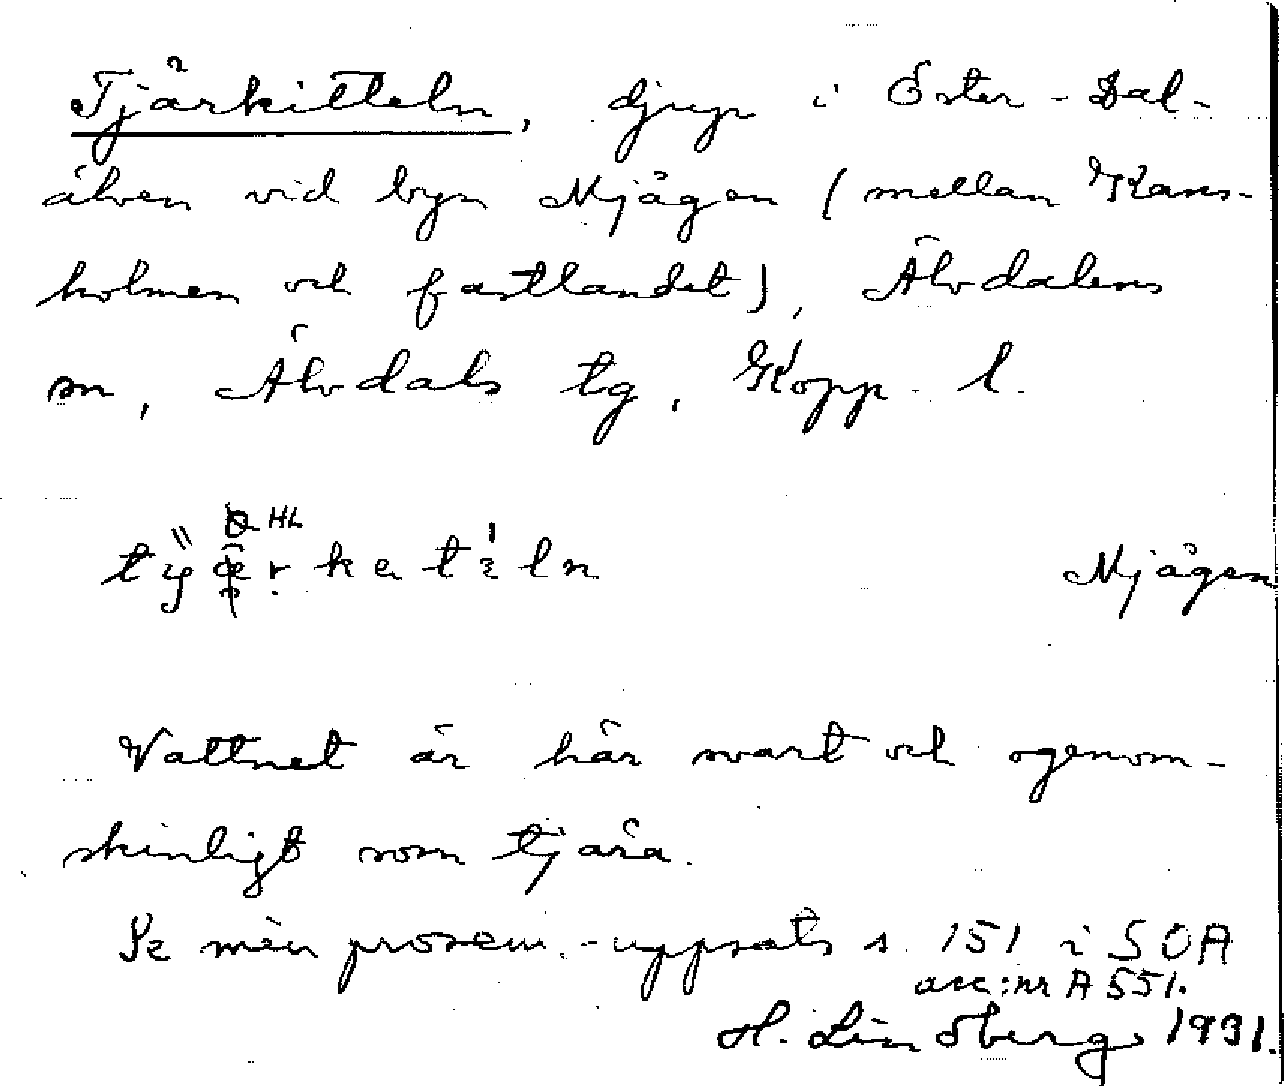 Tjärkitteln, djup i Öster-Dal-
älven vid byn Mjågen (mellan Kars-
holmen och fastlandet), Älvdalens
sn, Älvdals tg, Kopp. l.
HL
Mjågen
Vattnet är här svart och ogenom-
skinligt som tjära.
Se min prosem.-uppsats s. 151 i SOA
acc:nr A 551.
H. Lindberg 1931.